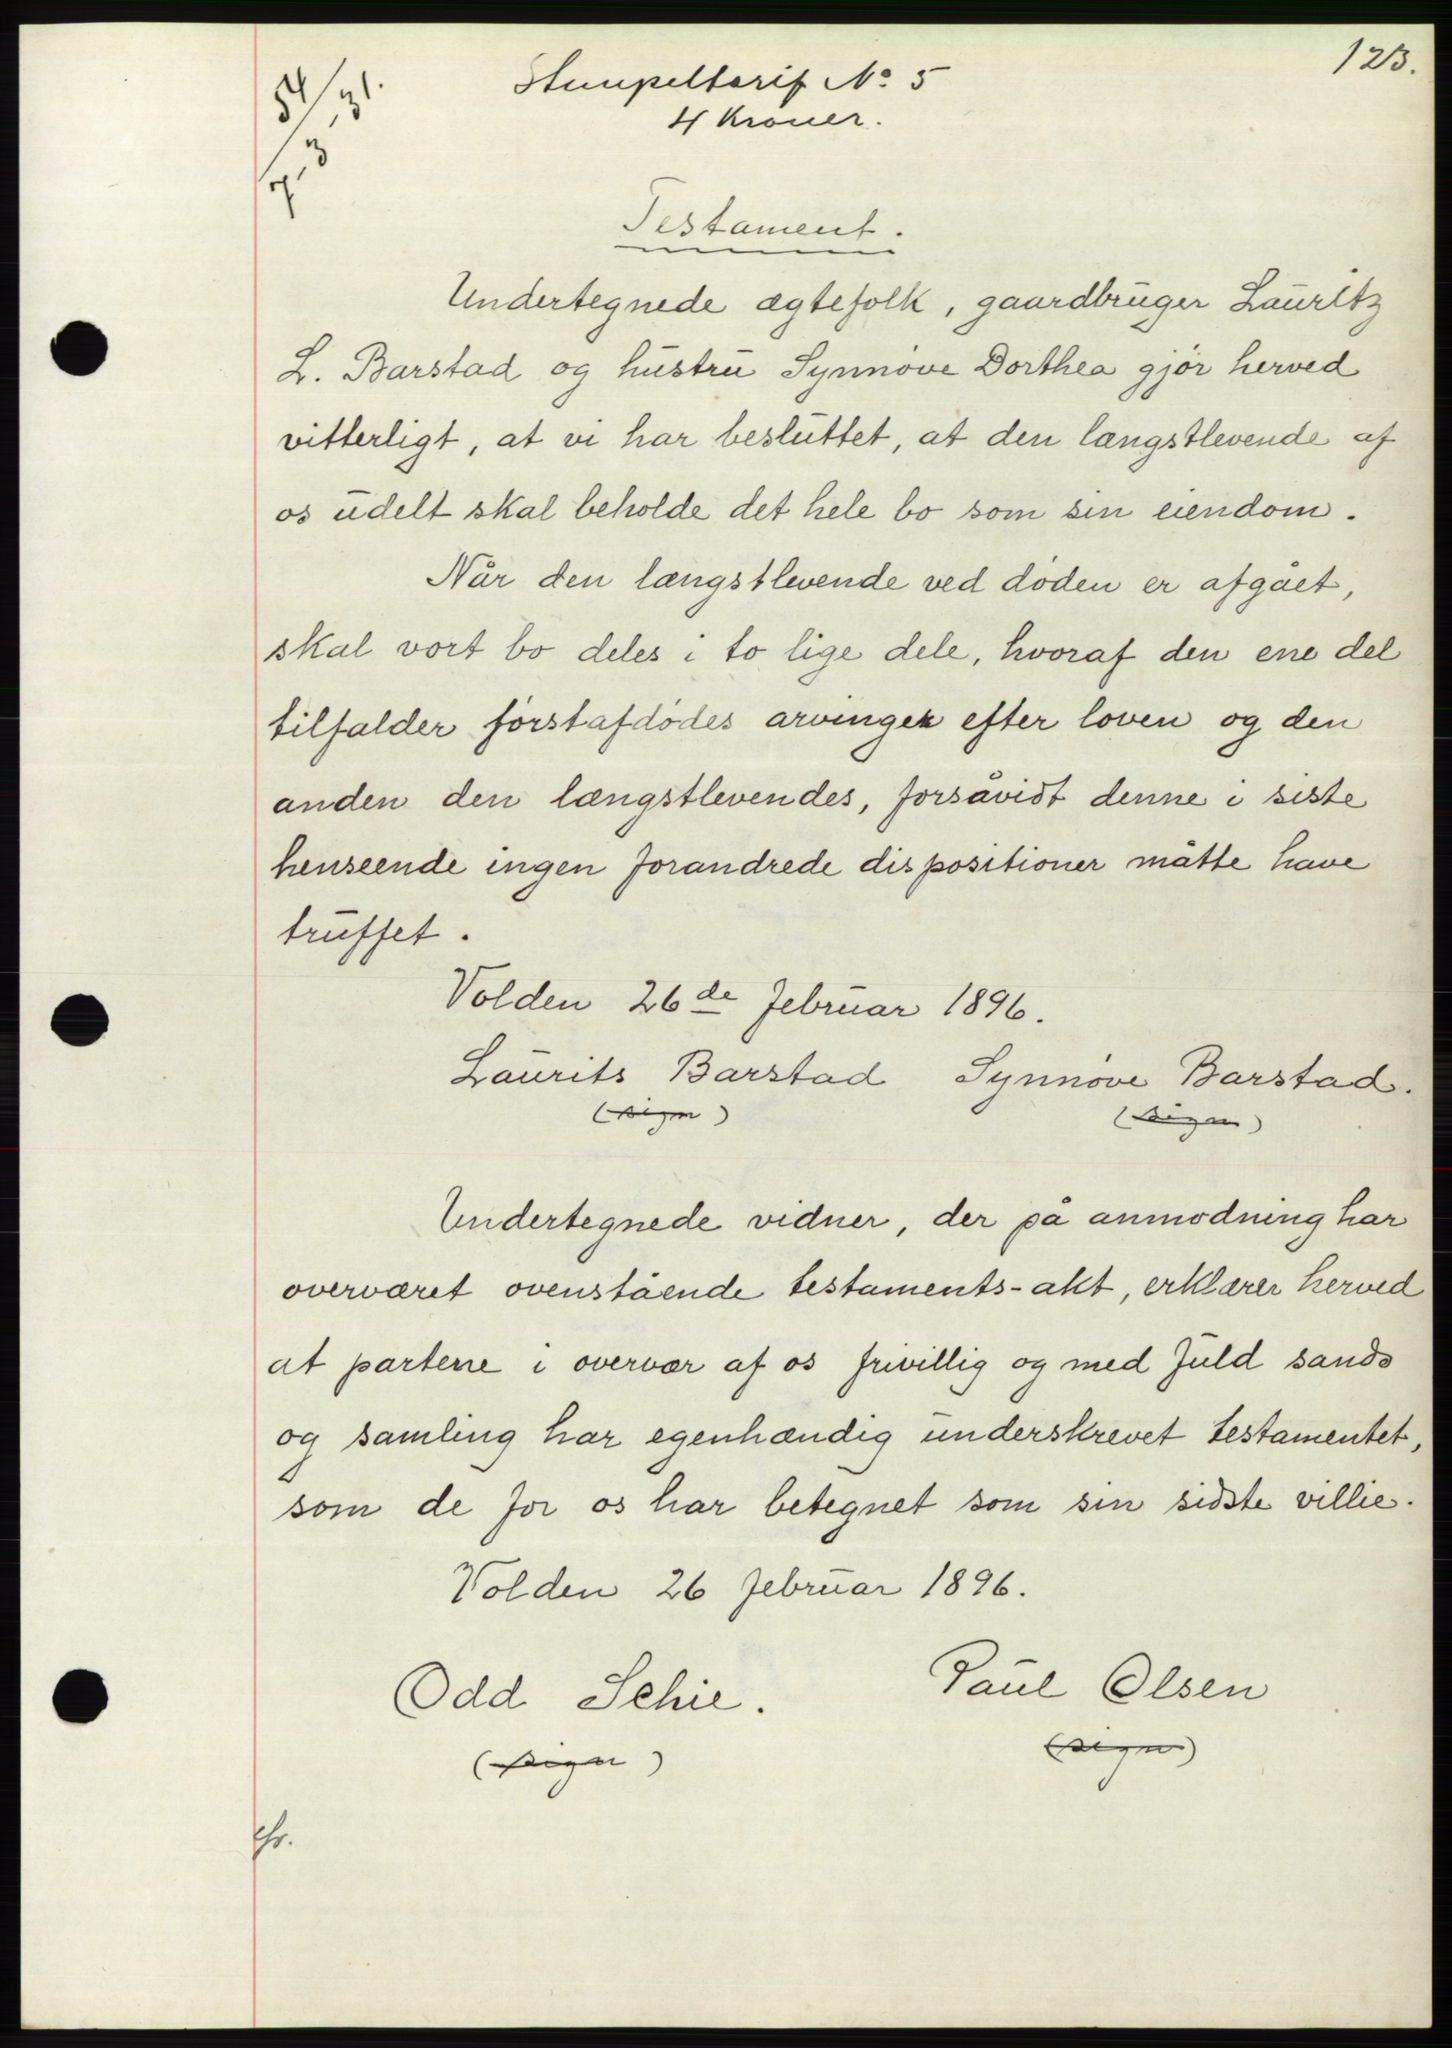 123.
54/31.
7/3
Stempeltarif No. 5
4 Kroner.
Testament.
Undertegnede ægtefolk, gaardbruger Lauritz
L. Barstad og hustru Synnøve Dorthea gjør herved
vitterligt, at vi har besluttet, at den længstlevende af
os udelt skal beholde det hele bo som sin eiendom.
Når den længstlevende ved døden er afgået,
skal vort bo deles i to lige dele, hvoraf den ene del
tilfalder førstafdødes arvinger efter loven og den
anden den længstlevendes, forsåvidt denne i siste
henseende ingen forandrede dispositioner måtte have
truffet.
Volden 26de februar 1896.
Laurits Barstad Synnøve Barstad.
(sign) (sign)
Undertegnede vidner, der på anmodning har
overværet ovenstående testaments-akt, erklærer herved
at partene i overvær af os frivillig og med fuld sands
og samling har egenhændig underskrevet testamentet,
som de for os har betegnet som sin sidste villie.
Volden 26 februar 1896.
Odd Schie. Paul Olsen
(sign) (sign)